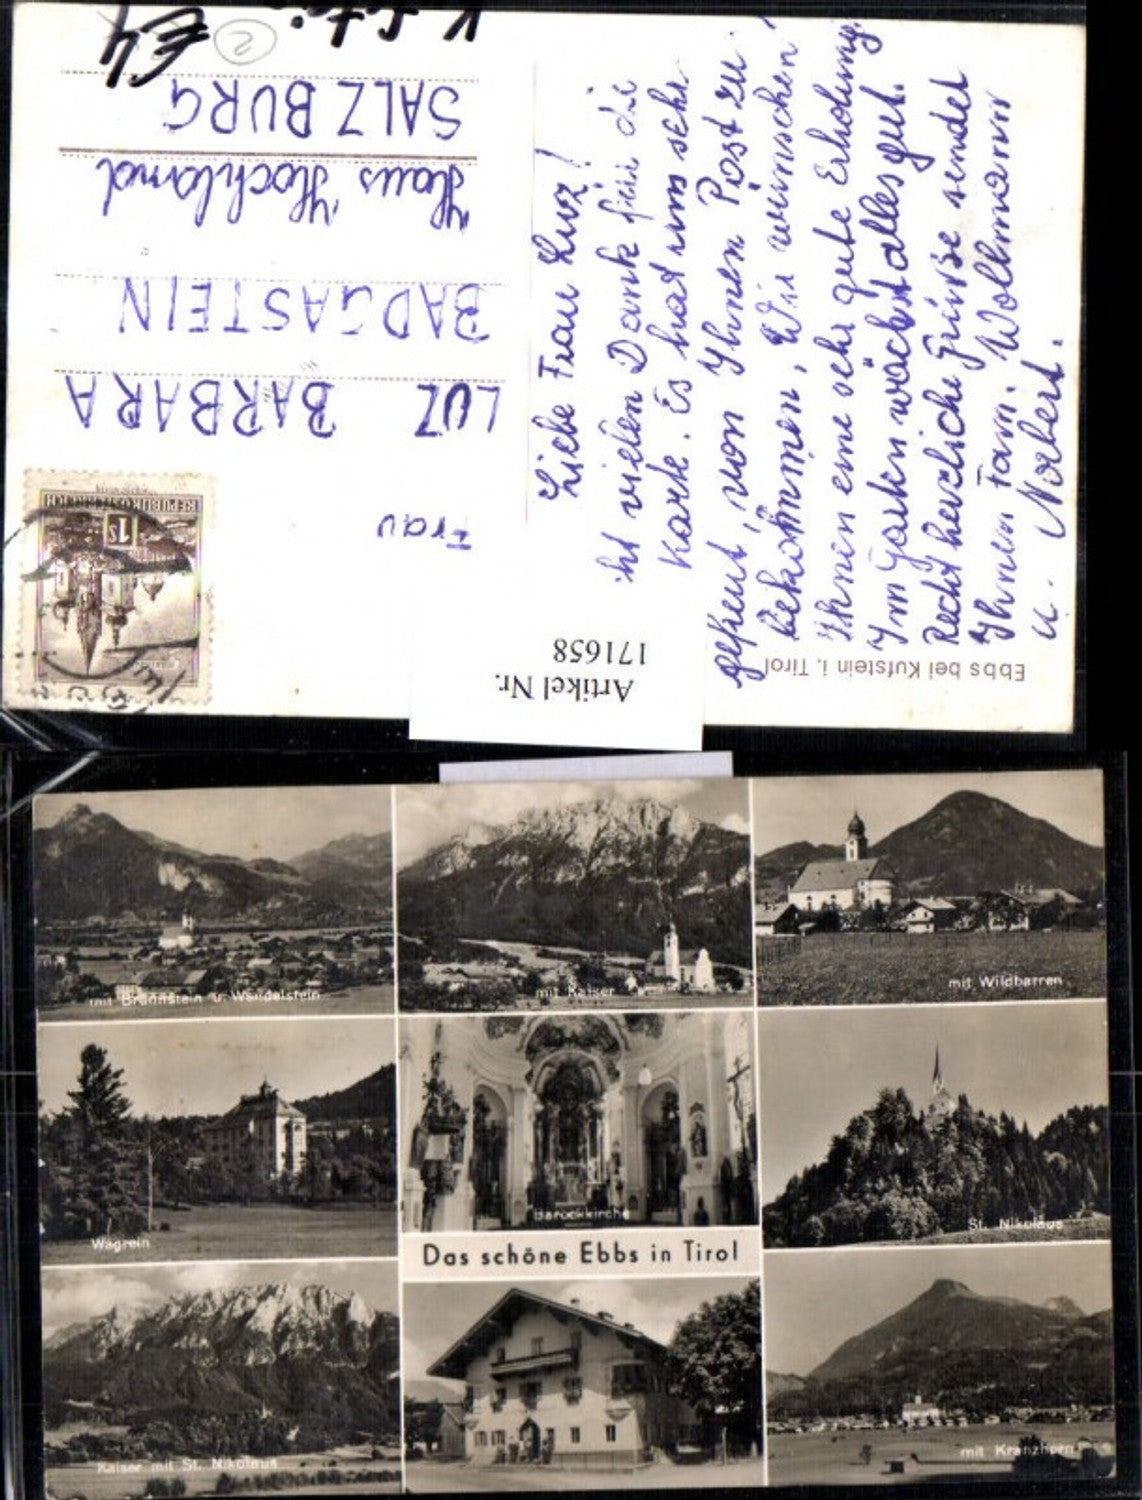 K
€4
2
Liebe Frau Luz!
ht vielen Dank für die
Karte. Es hat uns sehr
gefreut, von Ihnen Post zu
bekommen, Wir wünschen
Ihnen eine sehr gute Erholung.
Im Garten wächst alles gut.
Recht herzliche Grüße sendet
Ihnen Fam. Wolkmann
u. Norbert.
Frau
LUZ BARBARA
BADGASTEIN
Haus Hochland
SALZBURG
REPUBLIK ÖSTERREICH
1s
Ebbs bei Kufstein i. Tirol
Artikel Nr.
171658
mit Brünnstein u. Wendelstein
mit Kaiser
mit Wildbarren
Wagrein
Barockkirche
St. Nikolaus
Das schöne Ebbs in Tirol
Kaiser mit St. Nikolaus
mit Kranzhorn